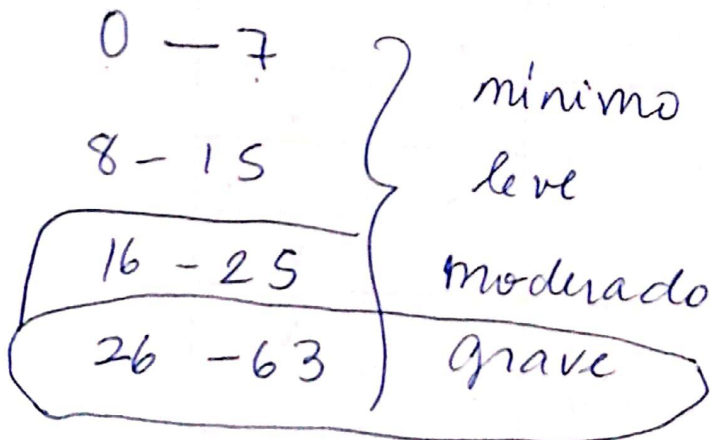 0 - 7 mínimo
8 - 15 leve
16 - 25 moderado
26 - 63 grave